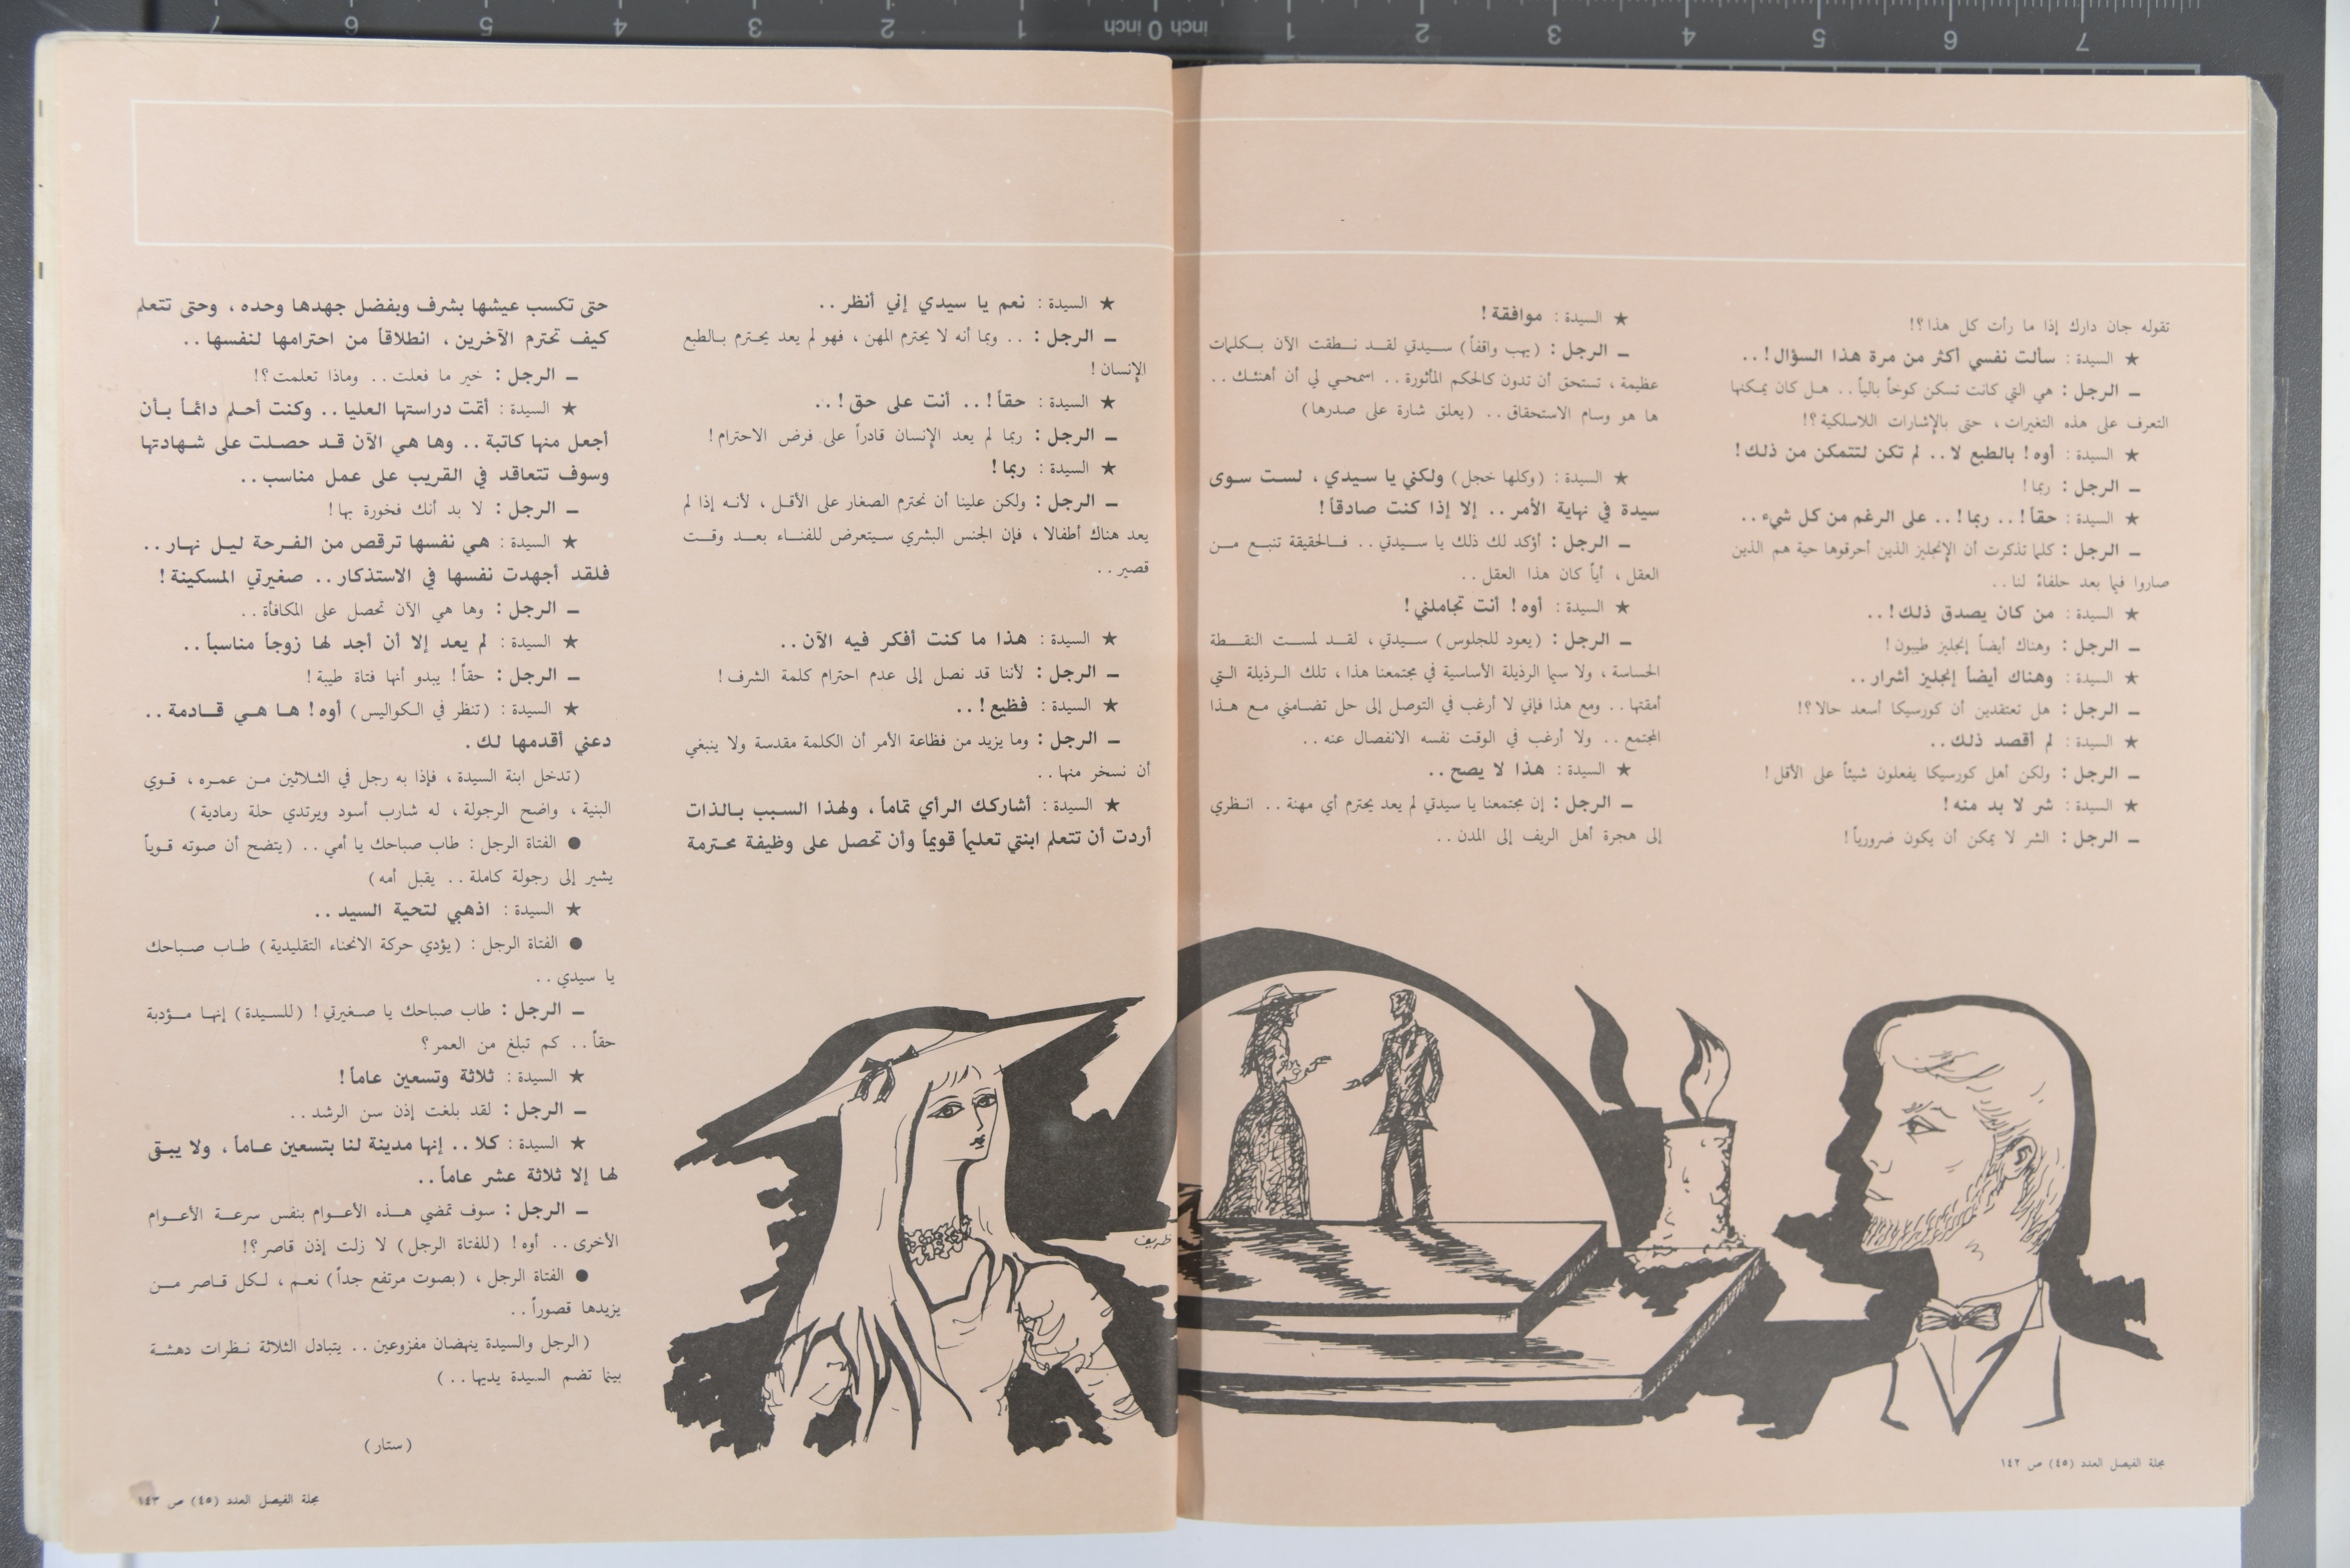 تقوله جان دارك إذا ما رأت كل هذا؟!
★ السيدة : سألت نفسي أكثر من مرة هذا السؤال! ..
ـ الرجل : هي التي كانت تسكن كوخاً بالياً .. هل كان يمكنها
التعرف على هذه التغيرات ، حتى بالإشارات اللاسلكية؟!
★ السيدة : أوه! بالطبع لا .. لم تكن لتتمكن من ذلك!
ـ الرجل : ربما!
★ السيدة : حقاً! .. ربما! .. على الرغم من كل شيء ..
ـ الرجل : كلما تذكرت أن الإنجليز الذين أحرقوها حية هم الذين
صاروا فيما بعد حلفاءً لنا ..
★ السيدة : من كان يصدق ذلك! ..
ـ الرجل : وهناك أيضاً إنجليز طيبون!
★ السيدة : وهناك أيضاً إنجليز أشرار ..
ـ الرجل : هل تعتقدين أن كورسيكا أسعد حالا؟!
★ السيدة : لم أقصد ذلك ..
ـ الرجل : ولكن أهل كورسيكا يفعلون شيئاً على الأقل!
★ السيدة : شر لا بد منه!
ـ الرجل : الشر لا يمكن أن يكون ضرورياً!
★ السيدة : موافقة!
ـ الرجل : (يهب واقفاً) سيدتي لقد نطقت الآن بكلمات
عظيمة ، تستحق أن تدون كالحكم المأثورة .. اسمحي لي أن أهنئك ..
ها هو وسام الاستحقاق .. (يعلق شارة على صدرها)
★ السيدة : (وكلها خجل) ولكني يا سيدي ، لست سوى
سيدة في نهاية الأمر .. إلا إذا كنت صادقاً!
ـ الرجل : أؤكد لك ذلك يا سيدتي .. فالحقيقة تنبع من
العقل ، أياً كان هذا العقل ..
★ السيدة : أوه! أنت تجاملني!
ـ الرجل : (يعود للجلوس) سيدتي ، لقد لمست النقطة
الحساسة ، ولا سيما الرذيلة الأساسية في مجتمعنا هذا ، تلك الرذيلة التي
أمقتها .. ومع هذا فإني لا أرغب في التوصل إلى حل تضامني مع هذا
المجتمع .. ولا أرغب في الوقت نفسه الانفصال عنه ..
★ السيدة : هذا لا يصح ..
ـ الرجل : إن مجتمعنا يا سيدتي لم يعد يحترم أي مهنة .. انظري
إلى هجرة أهل الريف إلى المدن ..
ظريف
مجلة الفيصل العدد (٤٥) ص ١٤٢
★ السيدة : نعم يا سيدي إني أنظر ..
ـ الرجل : .. وبما أنه لا يحترم المهن ، فهو لم يعد يحترم بالطبع
الإنسان!
★ السيدة : حقاً! .. أنت على حق! ..
ـ الرجل : ربما لم يعد الإنسان قادراً على فرض الاحترام!
★ السيدة : ربما!
ـ الرجل : ولكن علينا أن نحترم الصغار على الأقل ، لأنه إذا لم
يعد هناك أطفالا ، فإن الجنس البشري سيتعرض للفناء بعد وقت
قصير ..
★ السيدة : هذا ما كنت أفكر فيه الآن ..
ـ الرجل : لأننا قد نصل إلى عدم احترام كلمة الشرف!
★ السيدة : فظيع! ..
ـ الرجل : وما يزيد من فظاعة الأمر أن الكلمة مقدسة ولا ينبغي
أن نسخر منها ..
★ السيدة : أشاركك الرأي تماماً ، ولهذا السبب بالذات
أردت أن تتعلم ابنتي تعليماً قويماً وأن تحصل على وظيفة محترمة
حتى تكسب عيشها بشرف وبفضل جهدها وحده ، وحتى تتعلم
كيف تحترم الآخرين ، انطلاقاً من احترامها لنفسها ..
ـ الرجل : خير ما فعلت .. وماذا تعلمت؟!
★ السيدة : أتمت دراستها العليا .. وكنت أحلم دائماً بأن
أجعل منها كاتبة .. وها هي الآن قد حصلت على شهادتها
وسوف تتعاقد في القريب على عمل مناسب ..
ـ الرجل : لا بد أنك فخورة بها!
★ السيدة : هي نفسها ترقص من الفرحة ليل نهار ..
فلقد أجهدت نفسها في الاستذكار .. صغيرتي المسكينة!
ـ الرجل : وها هي الآن تحصل على المكافأة ..
★ السيدة : لم يعد إلا أن أجد لها زوجاً مناسباً ..
ـ الرجل : حقاً! يبدو أنها فتاة طيبة!
★ السيدة : (تنظر في الكواليس) أوه! ها هي قادمة ..
دعني أقدمها لك .
(تدخل ابنة السيدة ، فإذا به رجل في الثلاثين من عمره ، قوي
البنية ، واضح الرجولة ، له شارب أسود ويرتدي حلة رمادية)
● الفتاة الرجل : طاب صباحك يا أمي .. (يتضح أن صوته قوياً
يشير إلى رجولة كاملة .. يقبل أمه)
★ السيدة : اذهبي لتحية السيد ..
● الفتاة الرجل : (يؤدي حركة الانحناء التقليدية) طاب صباحك
يا سيدي ..
ـ الرجل : طاب صباحك يا صغيرتي! (للسيدة) إنها مؤدبة
حقاً .. كم تبلغ من العمر؟
★ السيدة : ثلاثة وتسعين عاماً!
ـ الرجل : لقد بلغت إذن سن الرشد ..
★ السيدة : كلا .. إنها مدينة لنا بتسعين عاماً ، ولا يبق
لها إلا ثلاثة عشر عاماً ..
ـ الرجل : سوف تمضي هذه الأعوام بنفس سرعة الأعوام
الأخرى .. أوه! (للفتاة الرجل) لا زلت إذن قاصر؟!
● الفتاة الرجل ، (بصوت مرتفع جداً) نعم ، لكل قاصر من
يزيدها قصوراً ..
(الرجل والسيدة ينهضان مفزوعين .. يتبادل الثلاثة نظرات دهشة
بينما تضم السيدة يديها ..)
(ستار)
مجلة الفيصل العدد (٤٥) ص ١٤٣
7 6 5 4 3 2 1 inch 0 inch 1 2 3 4 5 6 7